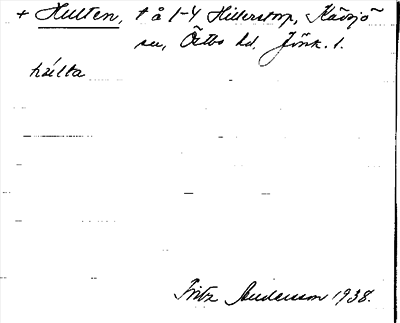 + Hulten, t å 1-4 Hillerstorp, Kävsjö
sn, Östbo hd. Jönk. l.
húlta
Fritz Andersson 1938.